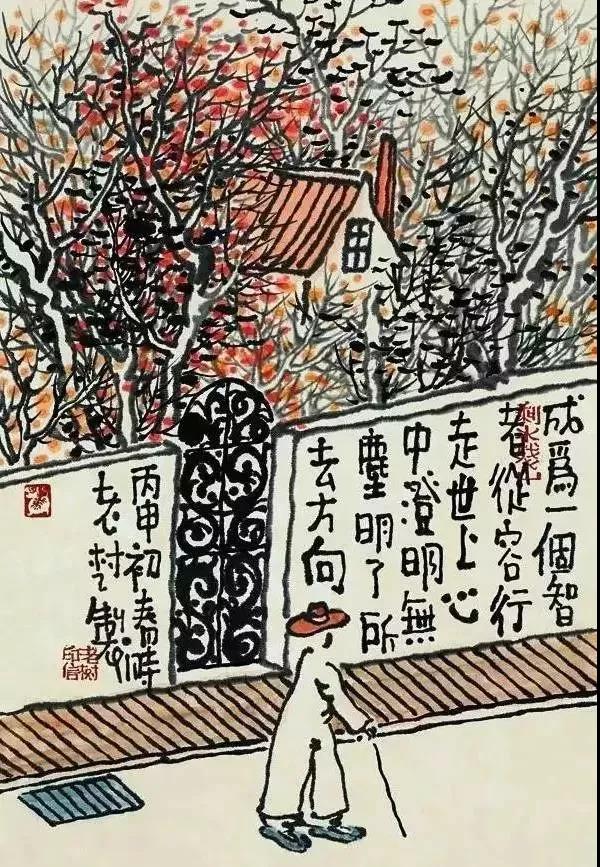 成爲一個智
者從容行
走世上心
中澄明無
塵明了所
去方向
丙申初春時
老树製
老树